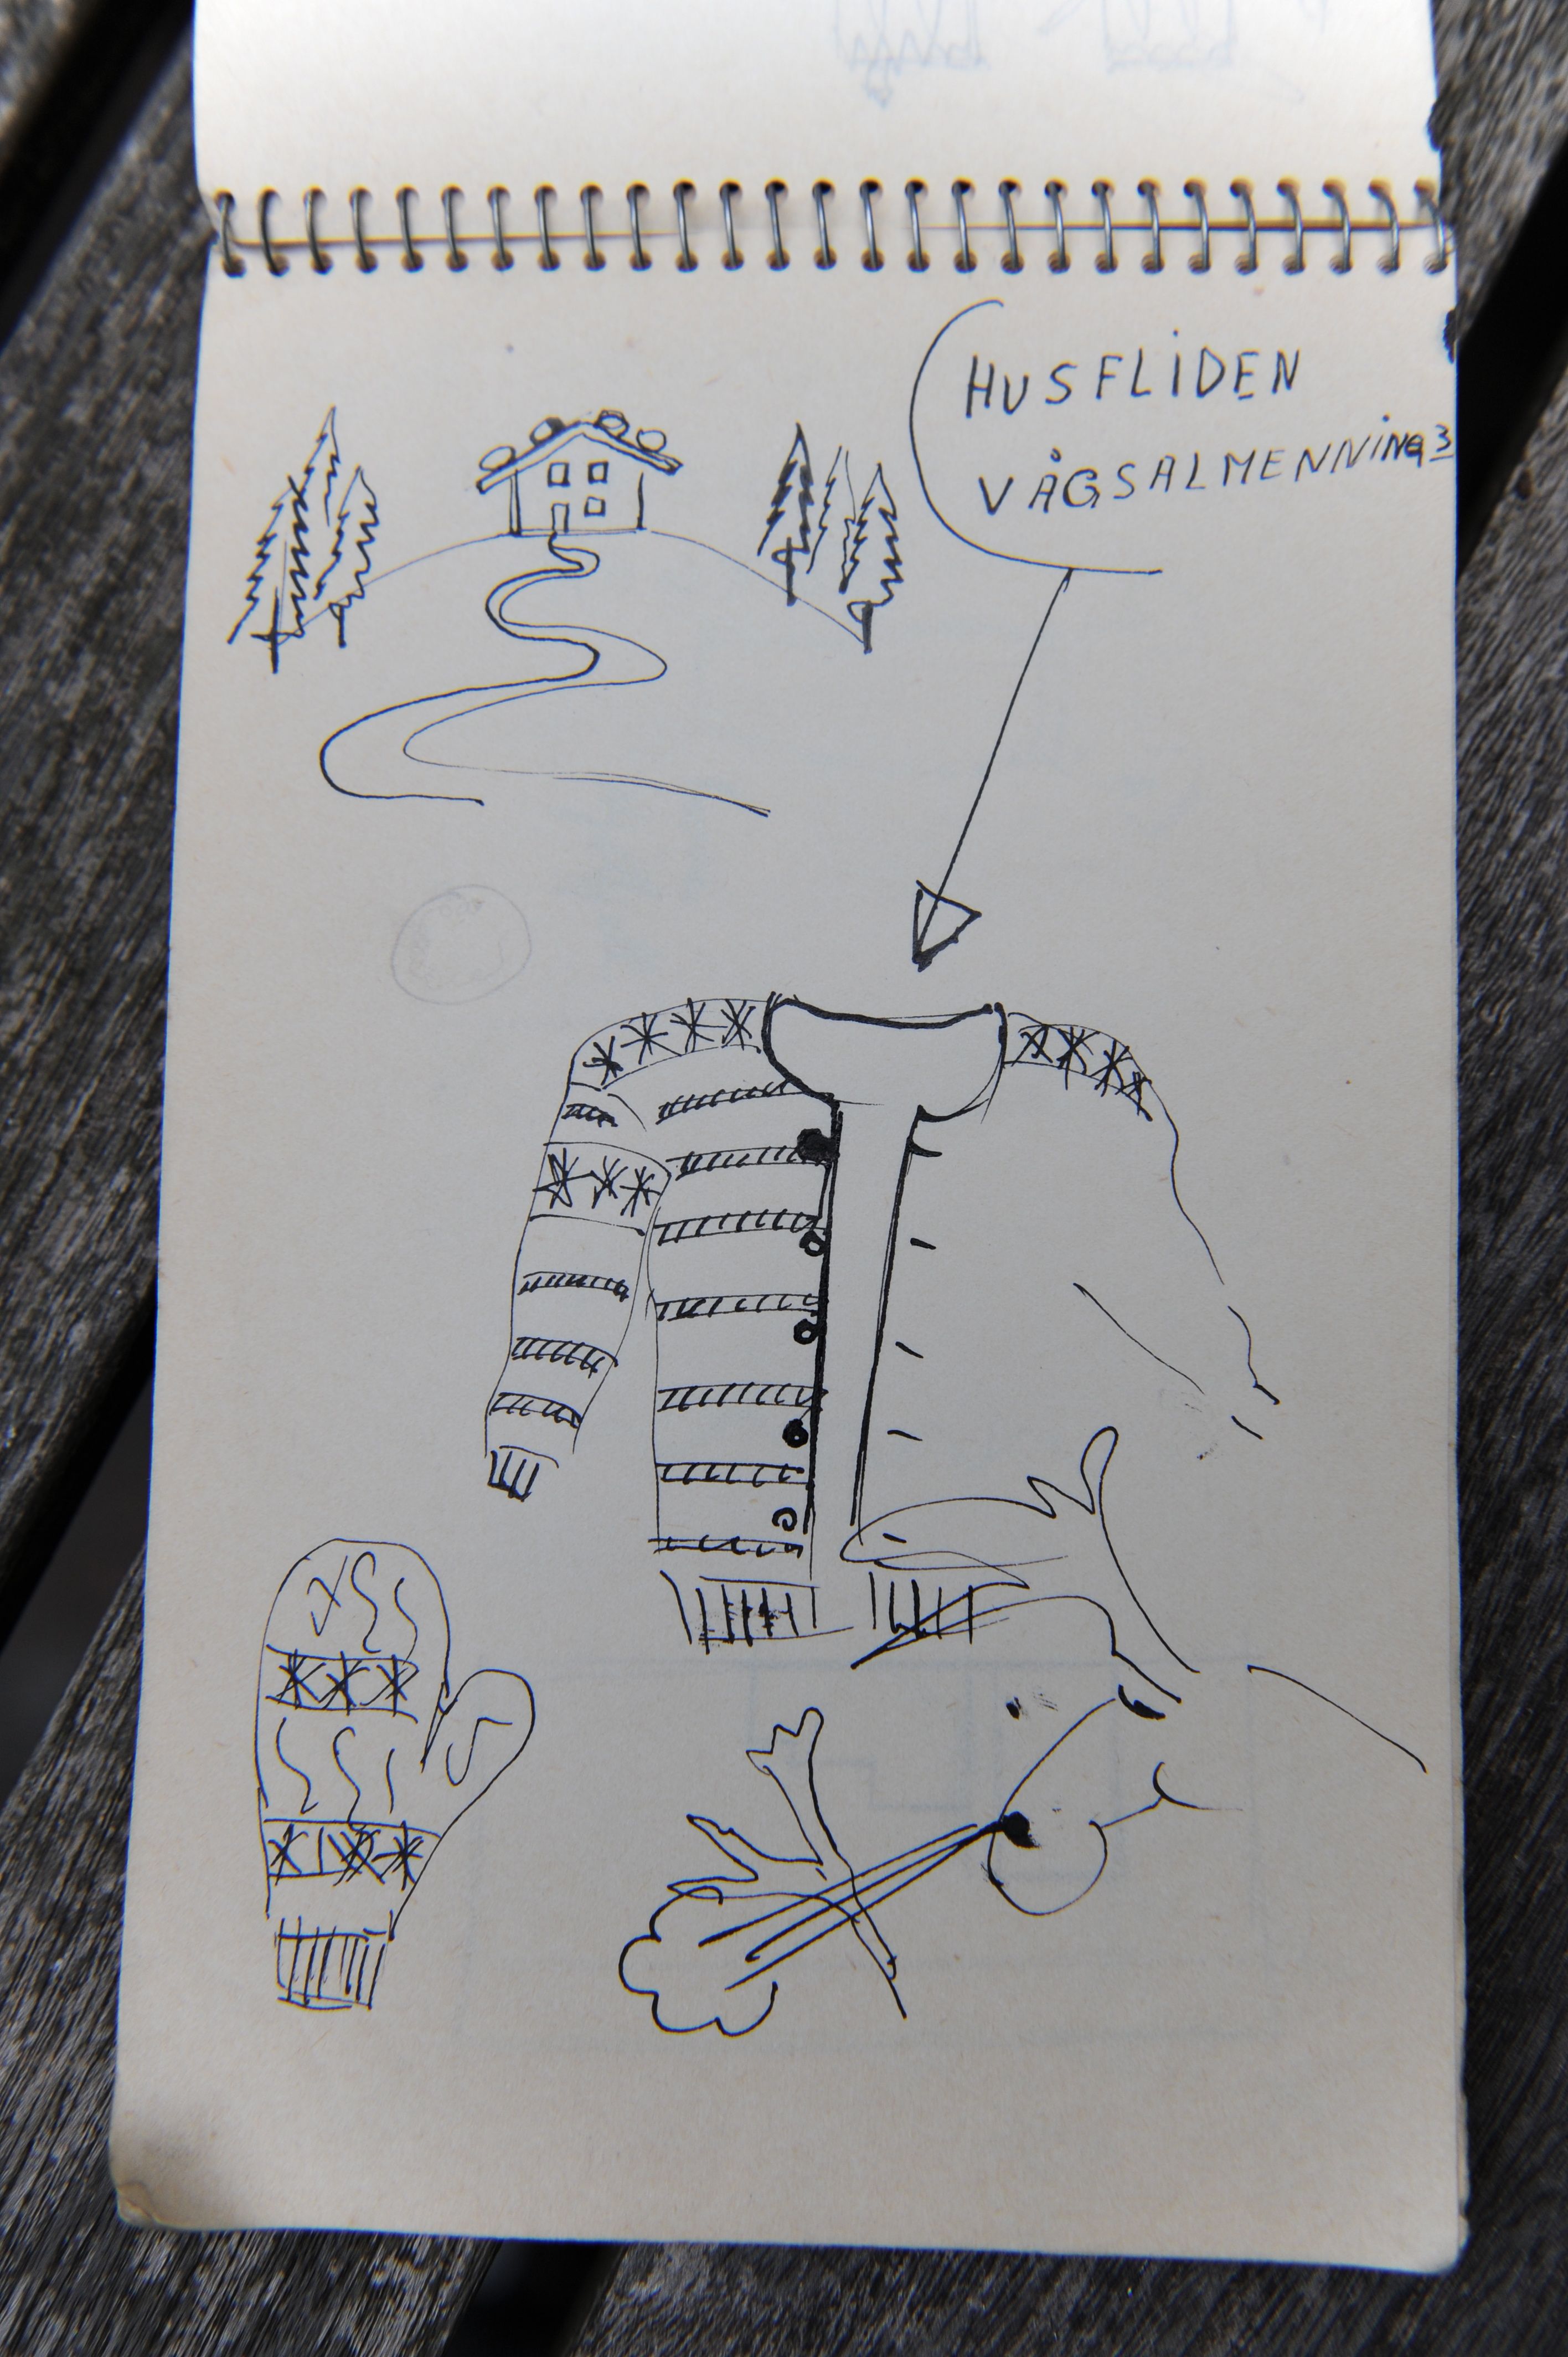 HUSFLIDEN
VÅGSALMENNING 3